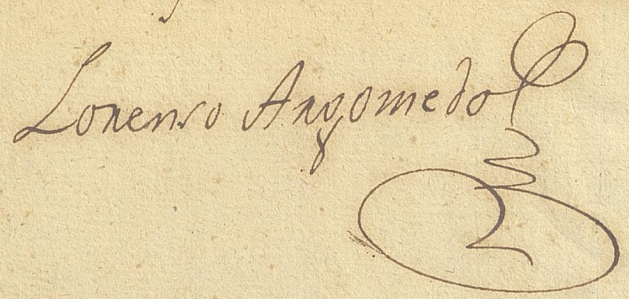 Lorenso Argomedo